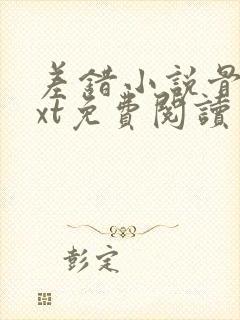 差錯小說骨
xt免費閱讀
彭定